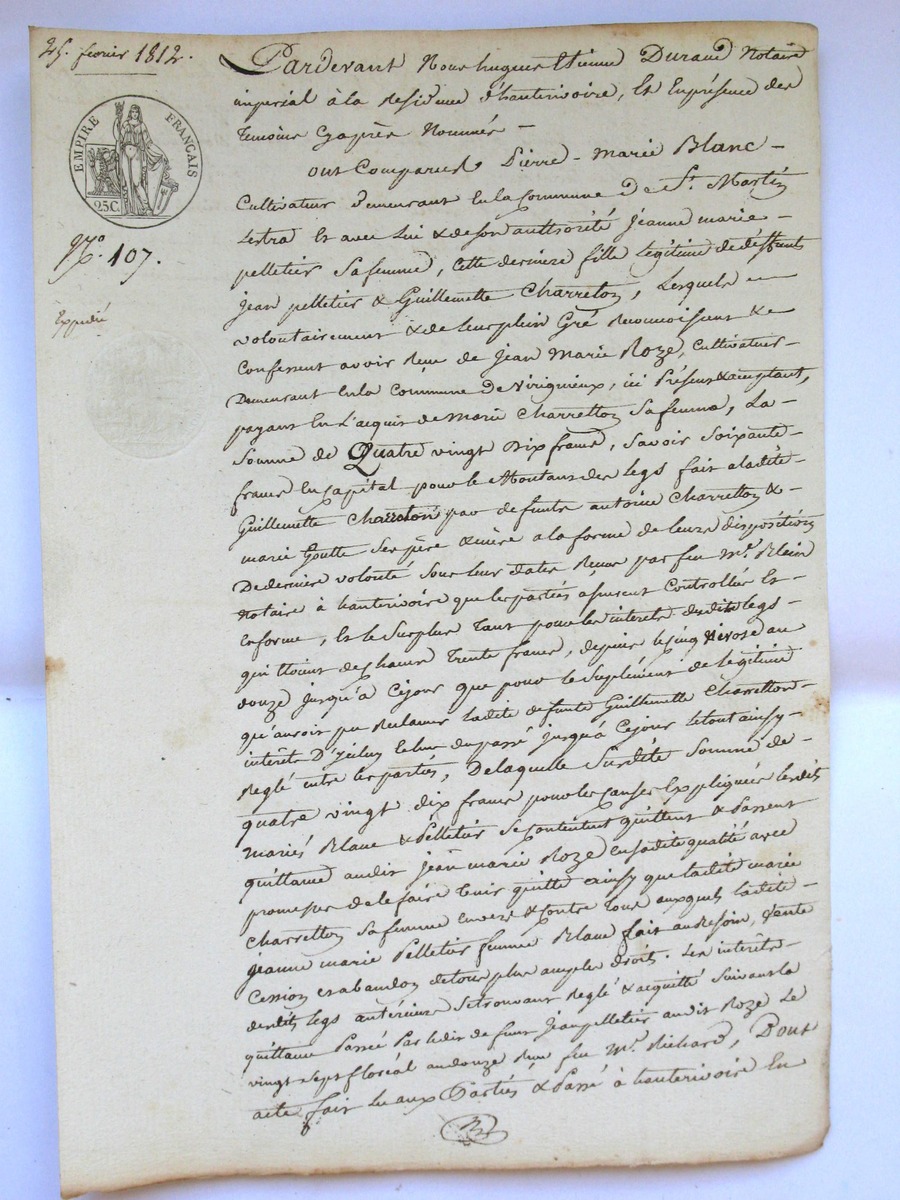 25. fevrier 1812.
EMPIRE FRANÇAIS
25C.
N.o 107.
Expedié
Pardevant Nous hugues Etienne Durand Notaire
imperial à la Residence d'hauterivoire, Et En présence des
temoins Cy après Nommés –
ont Comparus Pierre - Marie Blanc –
Cultivateur demeurant En la Commune de St. Martin
Lestra Et avec Lui & de son authorité Jeanne marie –
pelletier Sa femme, Cette derniere fille Légitime de deffunts
Jean pelletier & Guillemette Charreton, Lesquels –
volontairement & de leur plein Gré Reconnoissent &
Confessent avoir Reçu de Jean Marie Roze, Cultivateur
Demeurant En la Commune de Virignieux, ici Présent & acceptant,
payant En l'acquit de Marie Charretton Sa femme, La
Somme de Quatre vingt dix francs, Savoir Soixante
francs En Capital pour le Montant des legs fait a ladite
Guillemette Charreton par defunts antoine Charretton &
marie Goutte Ses père & mère a la forme de leurs dispositions
De derniere volonté Sous leur dates Reçues par feu Mr. Blein
Notaire à hauterivoire que les parties assurent Controllées Et
En forme, Et le Surplus tant pour les interets desdits legs –
qui étoient de chacun trente francs, depuis le cinq Nivose an
douze Jusqu'à Cejour que pour le Suplément de légitime
qu'auroit pu Reclamer Ladite defunte Guillemette Charretton
interets D'icelui Echus du passé Jusqu'à Cejour le tout ainsy
Reglé entre les parties, De laquelle Susdite Somme de –
quatre vingt dix francs pour les Causes Expliquées lesdits
Mariés Blanc & Pelletier Se Contentent quittent & Passent
quittance audit Jean marie Roze En sadite qualité avec
promesse de le faire tenir quitte ainsy que ladite marie
Charretton Sa femme envers & Contre tous auxquels ladite –
Jeanne marie Pelletier femme Blanc fait au Besoin, Vente
Cession et abandon de tous plus amples droits. Les intérêts –
desdits legs antérieurs Se trouvant Reglé & acquitté Suivant la
quittance Passée Par ledit defunt Jean pelletier audit Roze Le
vingt Sept floréal an douze Reçu feu Mr. Richard, Dont
acte fait lu aux Parties & Passé à hauterivoire En